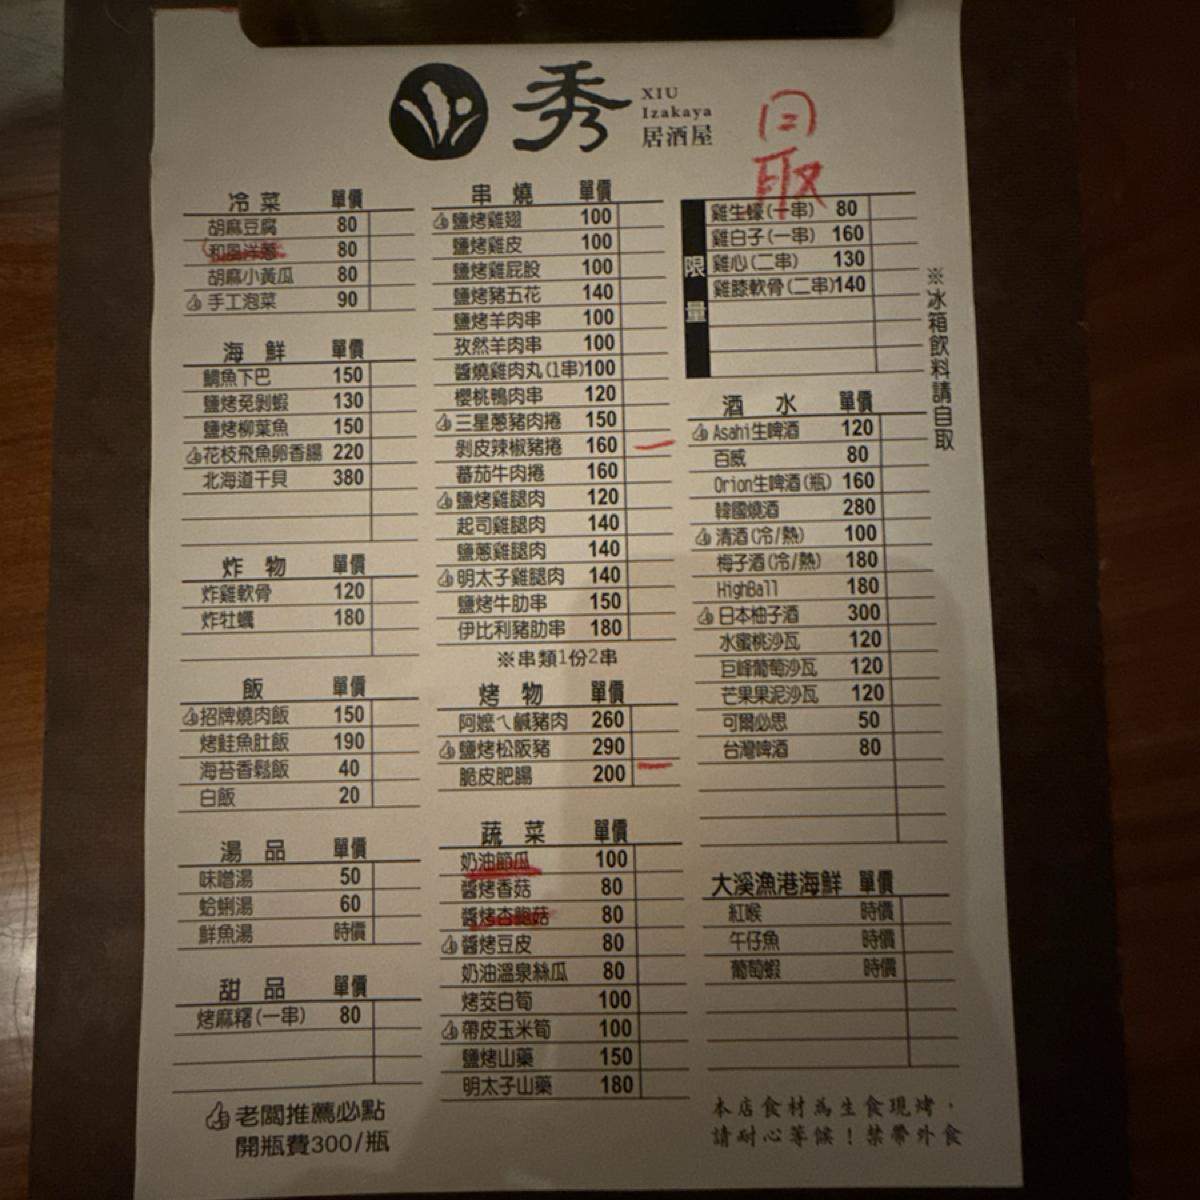 秀
XIU
Izakaya
居酒屋
冷菜 單價
胡麻豆腐 80
和風洋蔥 80
胡麻小黃瓜 80
手工泡菜 90
海鮮 單價
鯛魚下巴 150
鹽烤剝蝦 130
鹽烤柳葉魚 150
花枝飛魚卵香腸 220
北海道干貝 380
炸物 單價
炸雞軟骨 120
炸牡蠣 180
飯 單價
招牌燒肉飯 150
烤鮭魚肚飯 190
海苔香鬆飯 40
白飯 20
湯品 單價
味噌湯 50
蛤蜊湯 60
鮮魚湯 時價
甜品 單價
烤麻糬(一串) 80
老闆推薦必點
開瓶費300/瓶
串燒 單價
鹽烤雞翅 100
鹽烤雞皮 100
鹽烤雞屁股 100
鹽烤豬五花 140
鹽烤羊肉串 100
孜然羊肉串 100
醬燒雞肉丸(1串) 100
櫻桃鴨肉串 120
三星蔥豬肉捲 150
剝皮辣椒豬捲 160
蕃茄牛肉捲 160
鹽烤雞腿肉 120
起司雞腿肉 140
鹽蔥雞腿肉 140
明太子雞腿肉 140
鹽烤牛肋串 150
伊比利豬肋串 180
※串類1份2串
烤物 單價
阿嬤ㄟ鹹豬肉 260
鹽烤松阪豬 290
脆皮肥腸 200
蔬菜 單價
奶油節瓜 100
醬烤香菇 80
醬烤杏鮑菇 80
醬烤豆皮 80
奶油溫泉絲瓜 80
烤茭白筍 100
帶皮玉米筍 100
鹽烤山藥 150
明太子山藥 180
限量
雞生蠔(一串) 80
雞白子(一串) 160
雞心(二串) 130
雞膝軟骨(二串) 140
※冰箱飲料請自取
酒水 單價
Asahi生啤酒 120
百威 80
Orion生啤酒(瓶) 160
韓國燒酒 280
清酒(冷/熱) 100
梅子酒(冷/熱) 180
HighBall 180
日本柚子酒 300
水蜜桃沙瓦 120
巨峰葡萄沙瓦 120
芒果果泥沙瓦 120
可爾必思 50
台灣啤酒 80
大溪漁港海鮮 單價
紅喉 時價
午仔魚 時價
葡萄蝦 時價
本店食材為生食現烤，
請耐心等候！禁帶外食